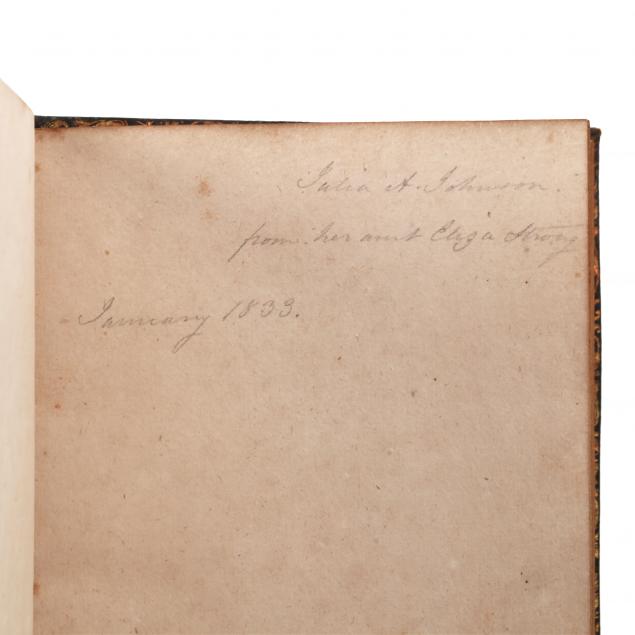 Julia A. Johnson.
from her aunt Eliza Strong
January 1833.